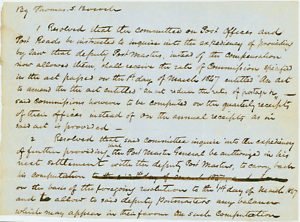 By Thomas S. Bocock
1 Resolved that the committee on Post Offices and
Post Roads be instructed to inquire into the expediency of providing
by law that deputy Post Masters, instead of the Compensation
now allowed them shall receive the rate of Commissions specified
in the act passed on the 1st day of March 1847 entitled "An act
to amend the act entitled "an act reduce the rates of postage,
said commissions however to be computed on the quarterly receipts
of their offices instead of on the annual receipts as in
said act is provided
2 Resolved that said Committee inquire into the expediency
of further providing that the Post Master General be authorized in his
next settlement with the deputy Post Masters, to carry back
his computation
on the basis of the foregoing resolutions to the 1st day of March 1847
and to allow to said deputy Postmasters any balance
which may appear in their favour on such Computation